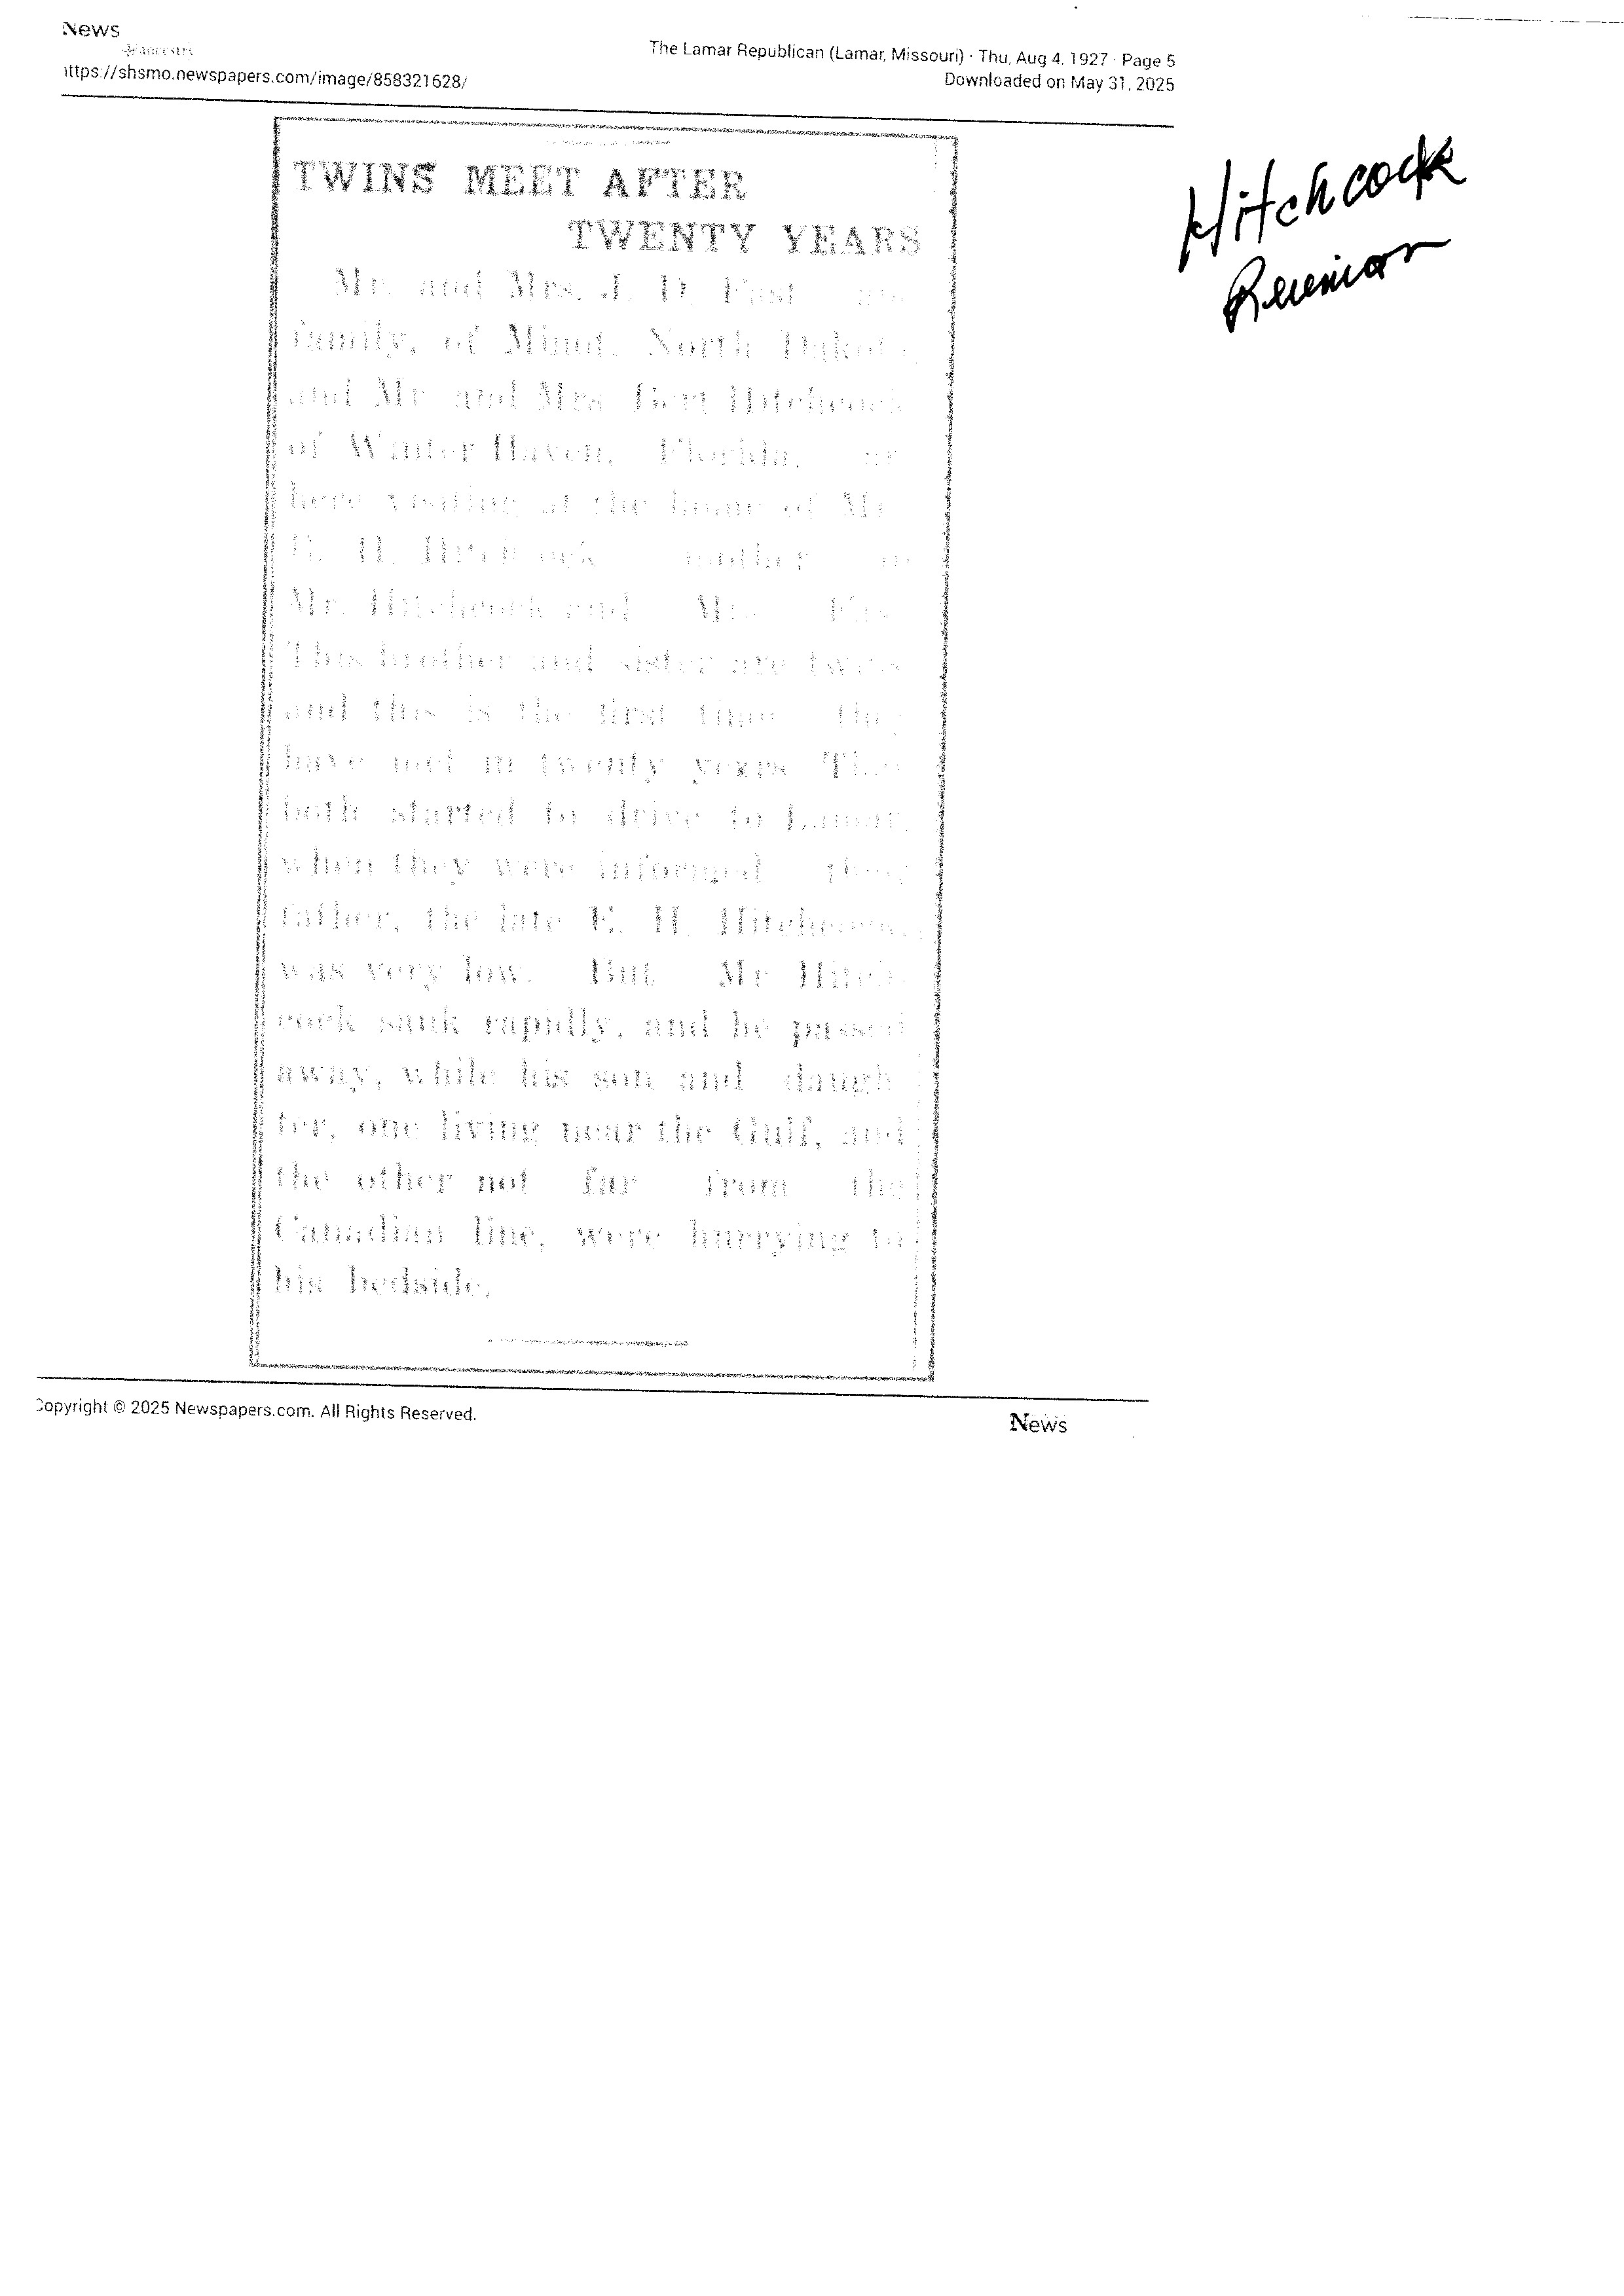 News
ancestry
https://shsmo.newspapers.com/image/858321628/
The Lamar Republican (Lamar, Missouri) · Thu, Aug 4, 1927 · Page 5
Downloaded on May 31, 2025
Hitchcock
Reunion
TWINS MEET AFTER
TWENTY YEARS
Mr. and Mrs. J. D. Fast
family, of Minot, North Dakota,
and Mr and Mrs Hitchcock
of Winter Haven, Florida,
here visiting at the home of
H. Hitchcock mother
Mr. Hitchcock and Mrs.
This brother and sister are twins
and this is the first time they
have met in twenty years They
both started to drive to Lamar,
when they were informed
father, the late E. H. Hitchcock,
was very low. But Mr Hitch-
cock sank rapidly, and he passed
away, while his son and daugh-
ter, one living near the Gulf, and
the other not far from the
Canadian line, were hurrying to
his bedside.
Copyright © 2025 Newspapers.com. All Rights Reserved.
News